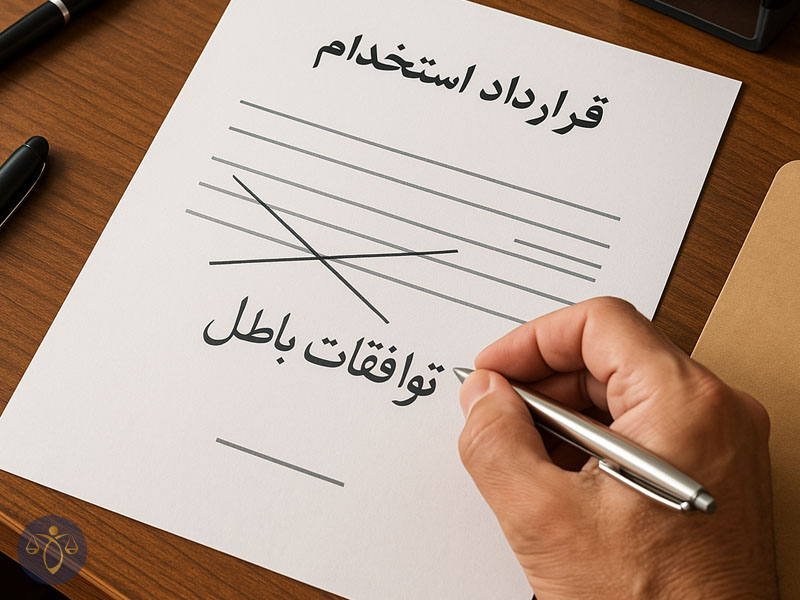 قرارداد استخدام
توافقات باطل